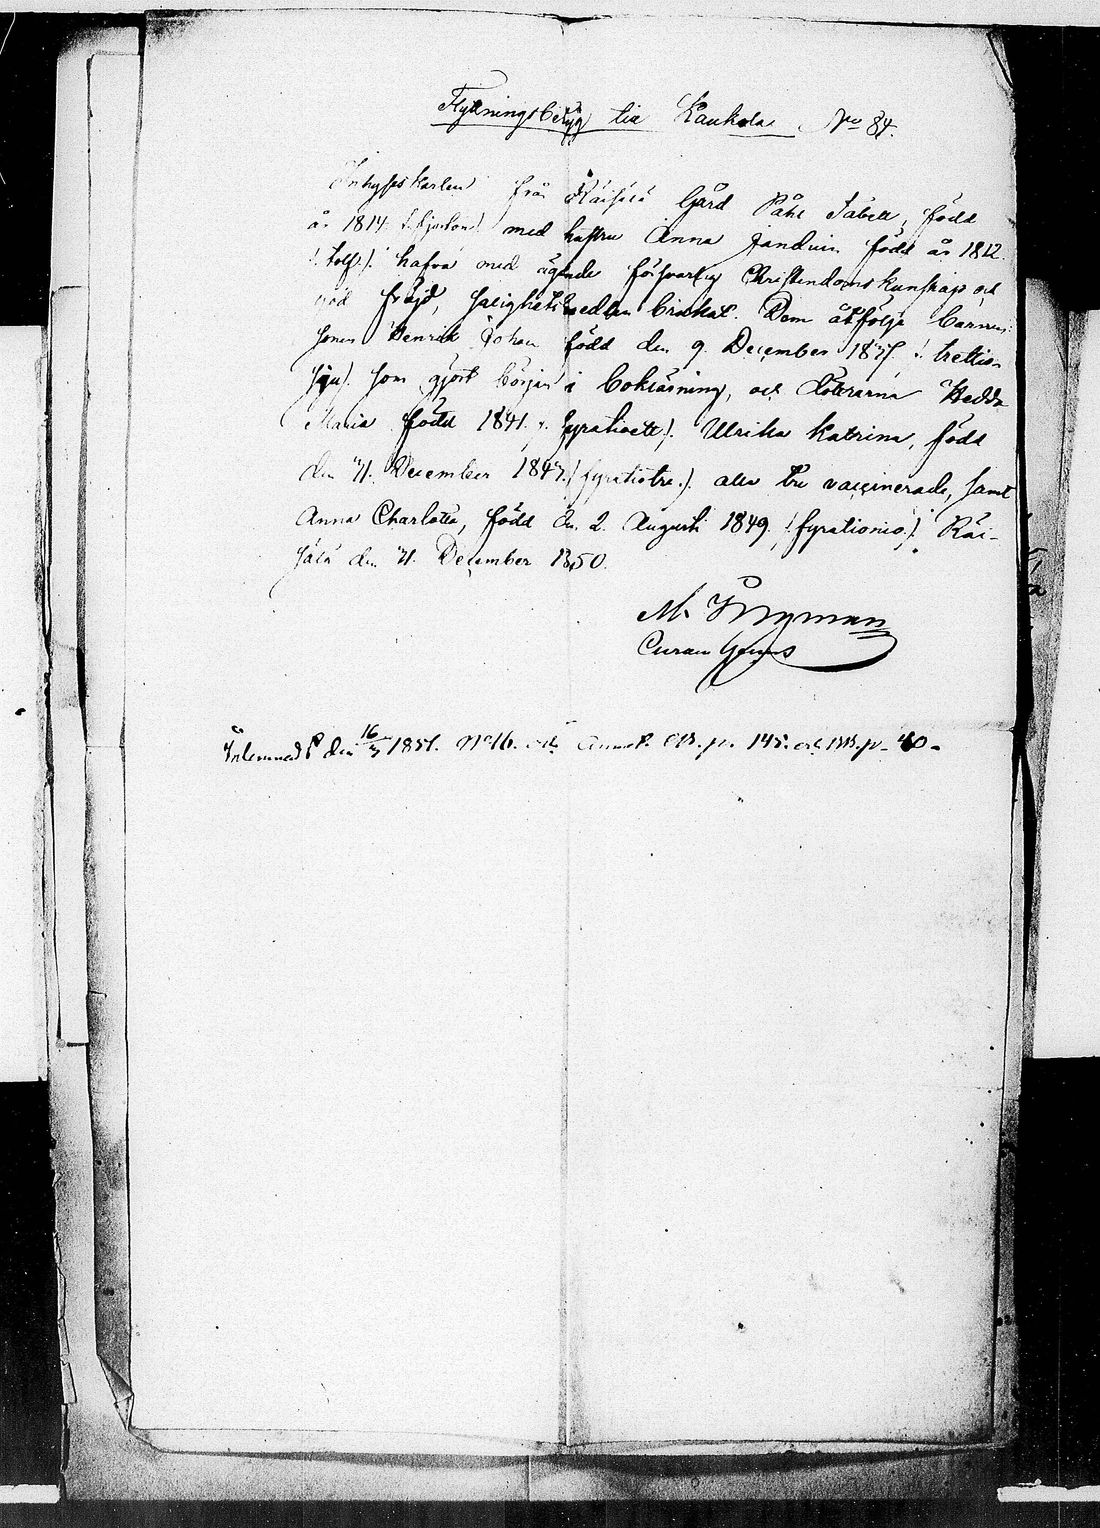 Flyttningsbetyg till Kaukola No 84.
Inhyseskarlen från Räisälä Gård Påhl Sabell, född
år 1814 /:fjorton:/ med hustru Anna Janduin född år 1812
/:tolf:/ hafva med ägande försvarlig Christendomskunskap och
god fräjd, salighetsmedlen brukat. Dem åtfölja barnen:
sonen Henrik Johan född den 9. December 1837 /:trettio-
sju:/ som gjort början i bokläsning, och döttrarna Hedda
Maria född 1841 /:fyratioett:/ Ulrika Katrina, född
den 31. December 1843 /:fyratiotre:/ alla tre vaccinerade, samt
Anna Charlotta, född den 2. Augusti 1849 /:fyrationio:/. Räi-
sälä den 31. December 1850.
M. Ingman
Inlemnadt den 16/3 1851. No 16. och annot. p. 145. och p. 40.